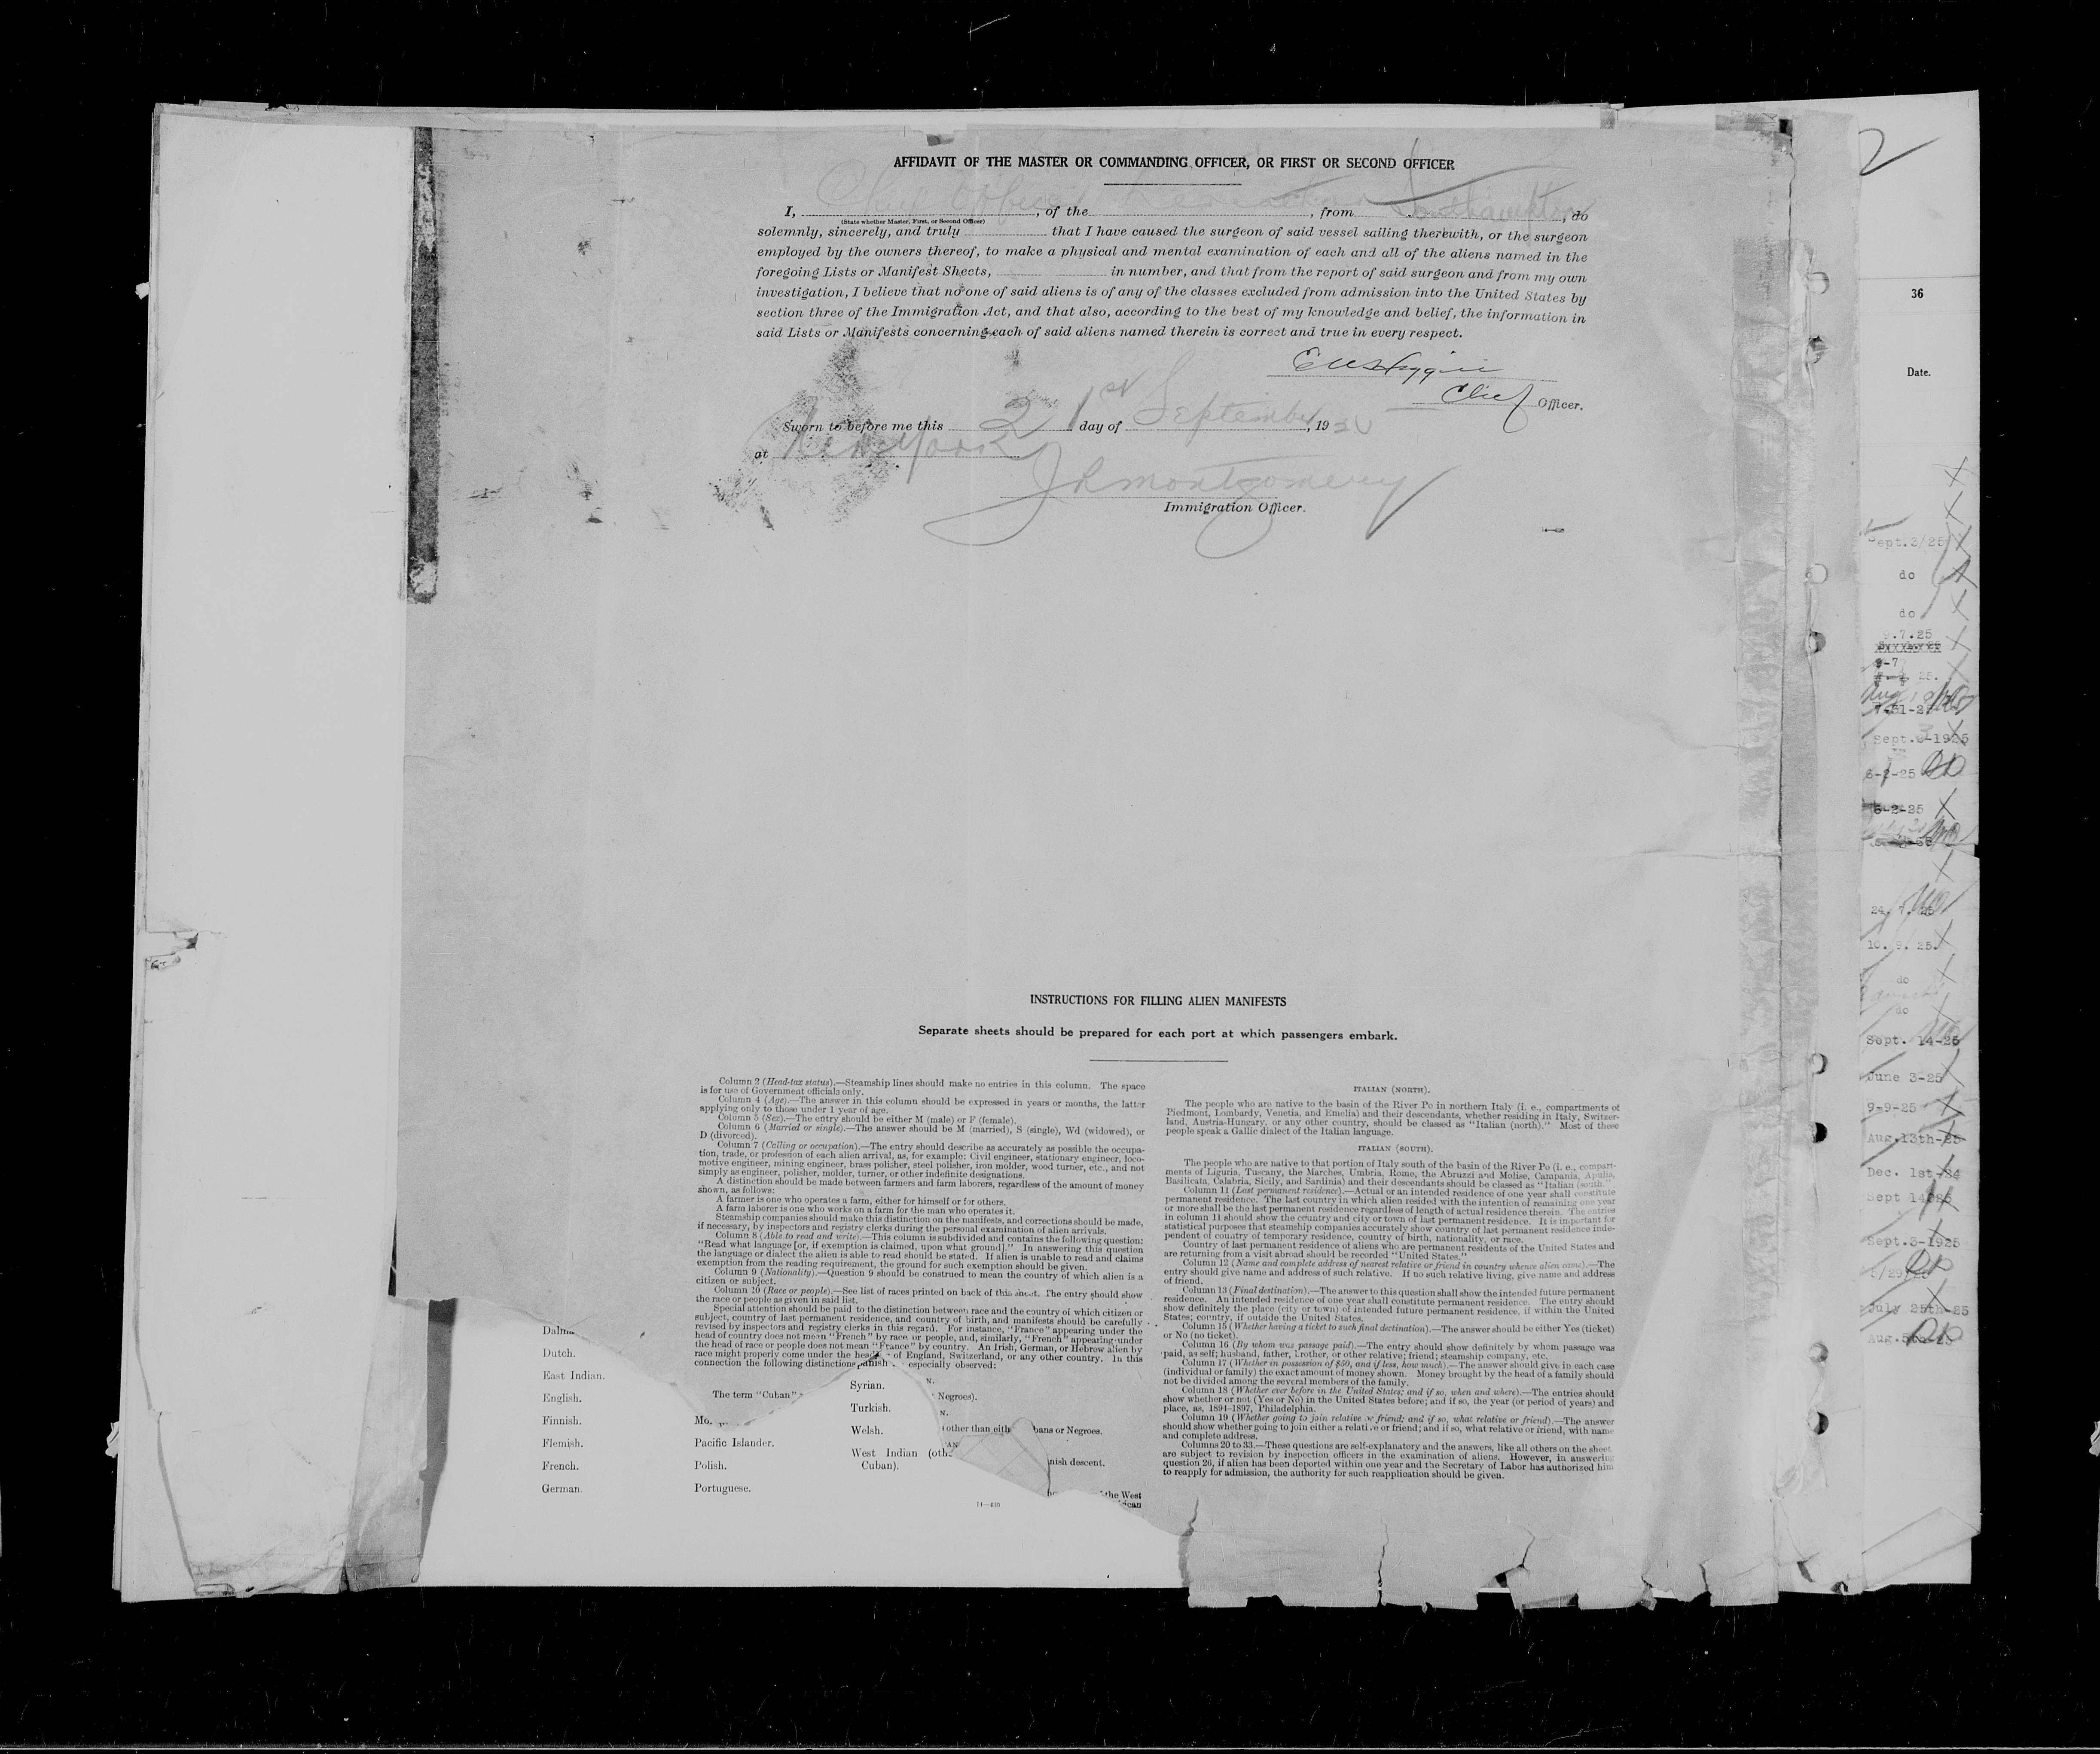 AFFIDAVIT OF THE MASTER OR COMMANDING OFFICER, OR FIRST OR SECOND OFFICER
I, Chief Officer, of the, from Southampton, do
(State whether Master, First, or Second Officer)
solemnly, sincerely, and truly that I have caused the surgeon of said vessel sailing therewith, or the surgeon
employed by the owners thereof, to make a physical and mental examination of each and all of the aliens named in the
foregoing Lists or Manifest Sheets, in number, and that from the report of said surgeon and from my own
investigation, I believe that no one of said aliens is of any of the classes excluded from admission into the United States by
section three of the Immigration Act, and that also, according to the best of my knowledge and belief, the information in
said Lists or Manifests concerning each of said aliens named therein is correct and true in every respect.
Chief Officer.
Sworn to before me this 21st day of September, 19
at New York
JR Montgomery
Immigration Officer.
INSTRUCTIONS FOR FILLING ALIEN MANIFESTS
Separate sheets should be prepared for each port at which passengers embark.
Column 2 (Head-tax status).—Steamship lines should make no entries in this column. The space
is for use of Government officials only.
Column 4 (Age).—The answer in this column should be expressed in years or months, the latter
applying only to those under 1 year of age.
Column 5 (Sex).—The entry should be either M (male) or F (female).
Column 6 (Married or single).—The answer should be M (married), S (single), Wd (widowed), or
D (divorced).
Column 7 (Calling or occupation).—The entry should describe as accurately as possible the occupa-
tion, trade, or profession of each alien arrival, as, for example: Civil engineer, stationary engineer, loco-
motive engineer, mining engineer, brass polisher, steel polisher, iron molder, wood turner, etc., and not
simply as engineer, polisher, molder, turner, or other indefinite designations.
A distinction should be made between farmers and farm laborers, regardless of the amount of money
shown, as follows:
A farmer is one who operates a farm, either for himself or for others.
A farm laborer is one who works on a farm for the man who operates it.
Steamship companies should make this distinction on the manifests, and corrections should be made,
if necessary, by inspectors and registry clerks during the personal examination of alien arrivals.
Column 8 (Able to read and write).—This column is subdivided and contains the following question:
"Read what language [or, if exemption is claimed, upon what ground]." In answering this question
the language or dialect the alien is able to read should be stated. If alien is unable to read and claims
exemption from the reading requirement, the ground for such exemption should be given.
Column 9 (Nationality).—Question 9 should be construed to mean the country of which alien is a
citizen or subject.
Column 10 (Race or people).—See list of races printed on back of this sheet. The entry should show
the race or people as given in said list.
Special attention should be paid to the distinction between race and the country of which citizen or
subject, country of last permanent residence, and country of birth, and manifests should be carefully
revised by inspectors and registry clerks in this regard. For instance, "France" appearing under the
head of country does not mean "French" by race or people, and, similarly, "French" appearing under
the head of race or people does not mean "France" by country. An Irish, German, or Hebrew alien by
race might properly come under the head of England, Switzerland, or any other country. In this
connection the following distinctions especially observed:
The term "Cuban" Negroes).
other than bans or Negroes.
nish descent.
the West
ITALIAN (NORTH).
The people who are native to the basin of the River Po in northern Italy (i. e., compartments of
Piedmont, Lombardy, Venetia, and Emelia) and their descendants, whether residing in Italy, Switzer-
land, Austria-Hungary, or any other country, should be classed as "Italian (north)." Most of these
people speak a Gallic dialect of the Italian language.
ITALIAN (SOUTH).
The people who are native to that portion of Italy south of the basin of the River Po (i. e., compart-
ments of Liguria, Tuscany, the Marches, Umbria, Rome, the Abruzzi and Molise, Campania, Apulia,
Basilicata, Calabria, Sicily, and Sardinia) and their descendants should be classed as "Italian (south."
Column 11 (Last permanent residence).—Actual or an intended residence of one year shall constitute
permanent residence. The last country in which alien resided with the intention of remaining one year
or more shall be the last permanent residence regardless of length of actual residence therein. The entries
in column 11 should show the country and city or town of last permanent residence. It is important for
statistical purposes that steamship companies accurately show country of last permanent residence inde-
pendent of country of temporary residence, country of birth, nationality, or race.
Country of last permanent residence of aliens who are permanent residents of the United States and
are returning from a visit abroad should be recorded "United States."
Column 12 (Name and complete address of nearest relative or friend in country whence alien came).—The
entry should give name and address of such relative. If no such relative living, give name and address
of friend.
Column 13 (Final destination).—The answer to this question shall show the intended future permanent
residence. An intended residence of one year shall constitute permanent residence. The entry should
show definitely the place (city or town) of intended future permanent residence, if within the United
States; country, if outside the United States.
Column 15 (Whether having a ticket to such final destination).—The answer should be either Yes (ticket)
or No (no ticket).
Column 16 (By whom was passage paid).—The entry should show definitely by whom passage was
paid, as self; husband, father, brother, or other relative; friend; steamship company, etc.
Column 17 (Whether in possession of $50, and if less, how much).—The answer should give in each case
(individual or family) the exact amount of money shown. Money brought by the head of a family should
not be divided among the several members of the family.
Column 18 (Whether ever before in the United States; and if so, when and where).—The entries should
show whether or not (Yes or No) in the United States before; and if so, the year (or period of years) and
place, as, 1894-1897, Philadelphia.
Column 19 (Whether going to join relative or friend; and if so, what relative or friend).—The answer
should show whether going to join either a relative or friend; and if so, what relative or friend, with name
and complete address.
Columns 20 to 33.—These questions are self-explanatory and the answers, like all others on the sheet,
are subject to revision by inspection officers in the examination of aliens. However, in answering
question 26, if alien has been deported within one year and the Secretary of Labor has authorized him
to reapply for admission, the authority for such reapplication should be given.
Dutch.
East Indian.
English.
Finnish.
Flemish.
French.
German.
Pacific Islander.
Polish.
Portuguese.
Syrian.
Turkish.
Welsh.
West Indian (other
Cuban).
14—430
2
36
Date.
Sept.3/25
do
do
Sept.3-1925
6-2-25
10. 9. 25.
do
do
Sept. 14-25
June 3-25
9-9-25
Aug.13th-25
Dec. 1st-24
Sept.3-1925
July 25th-25